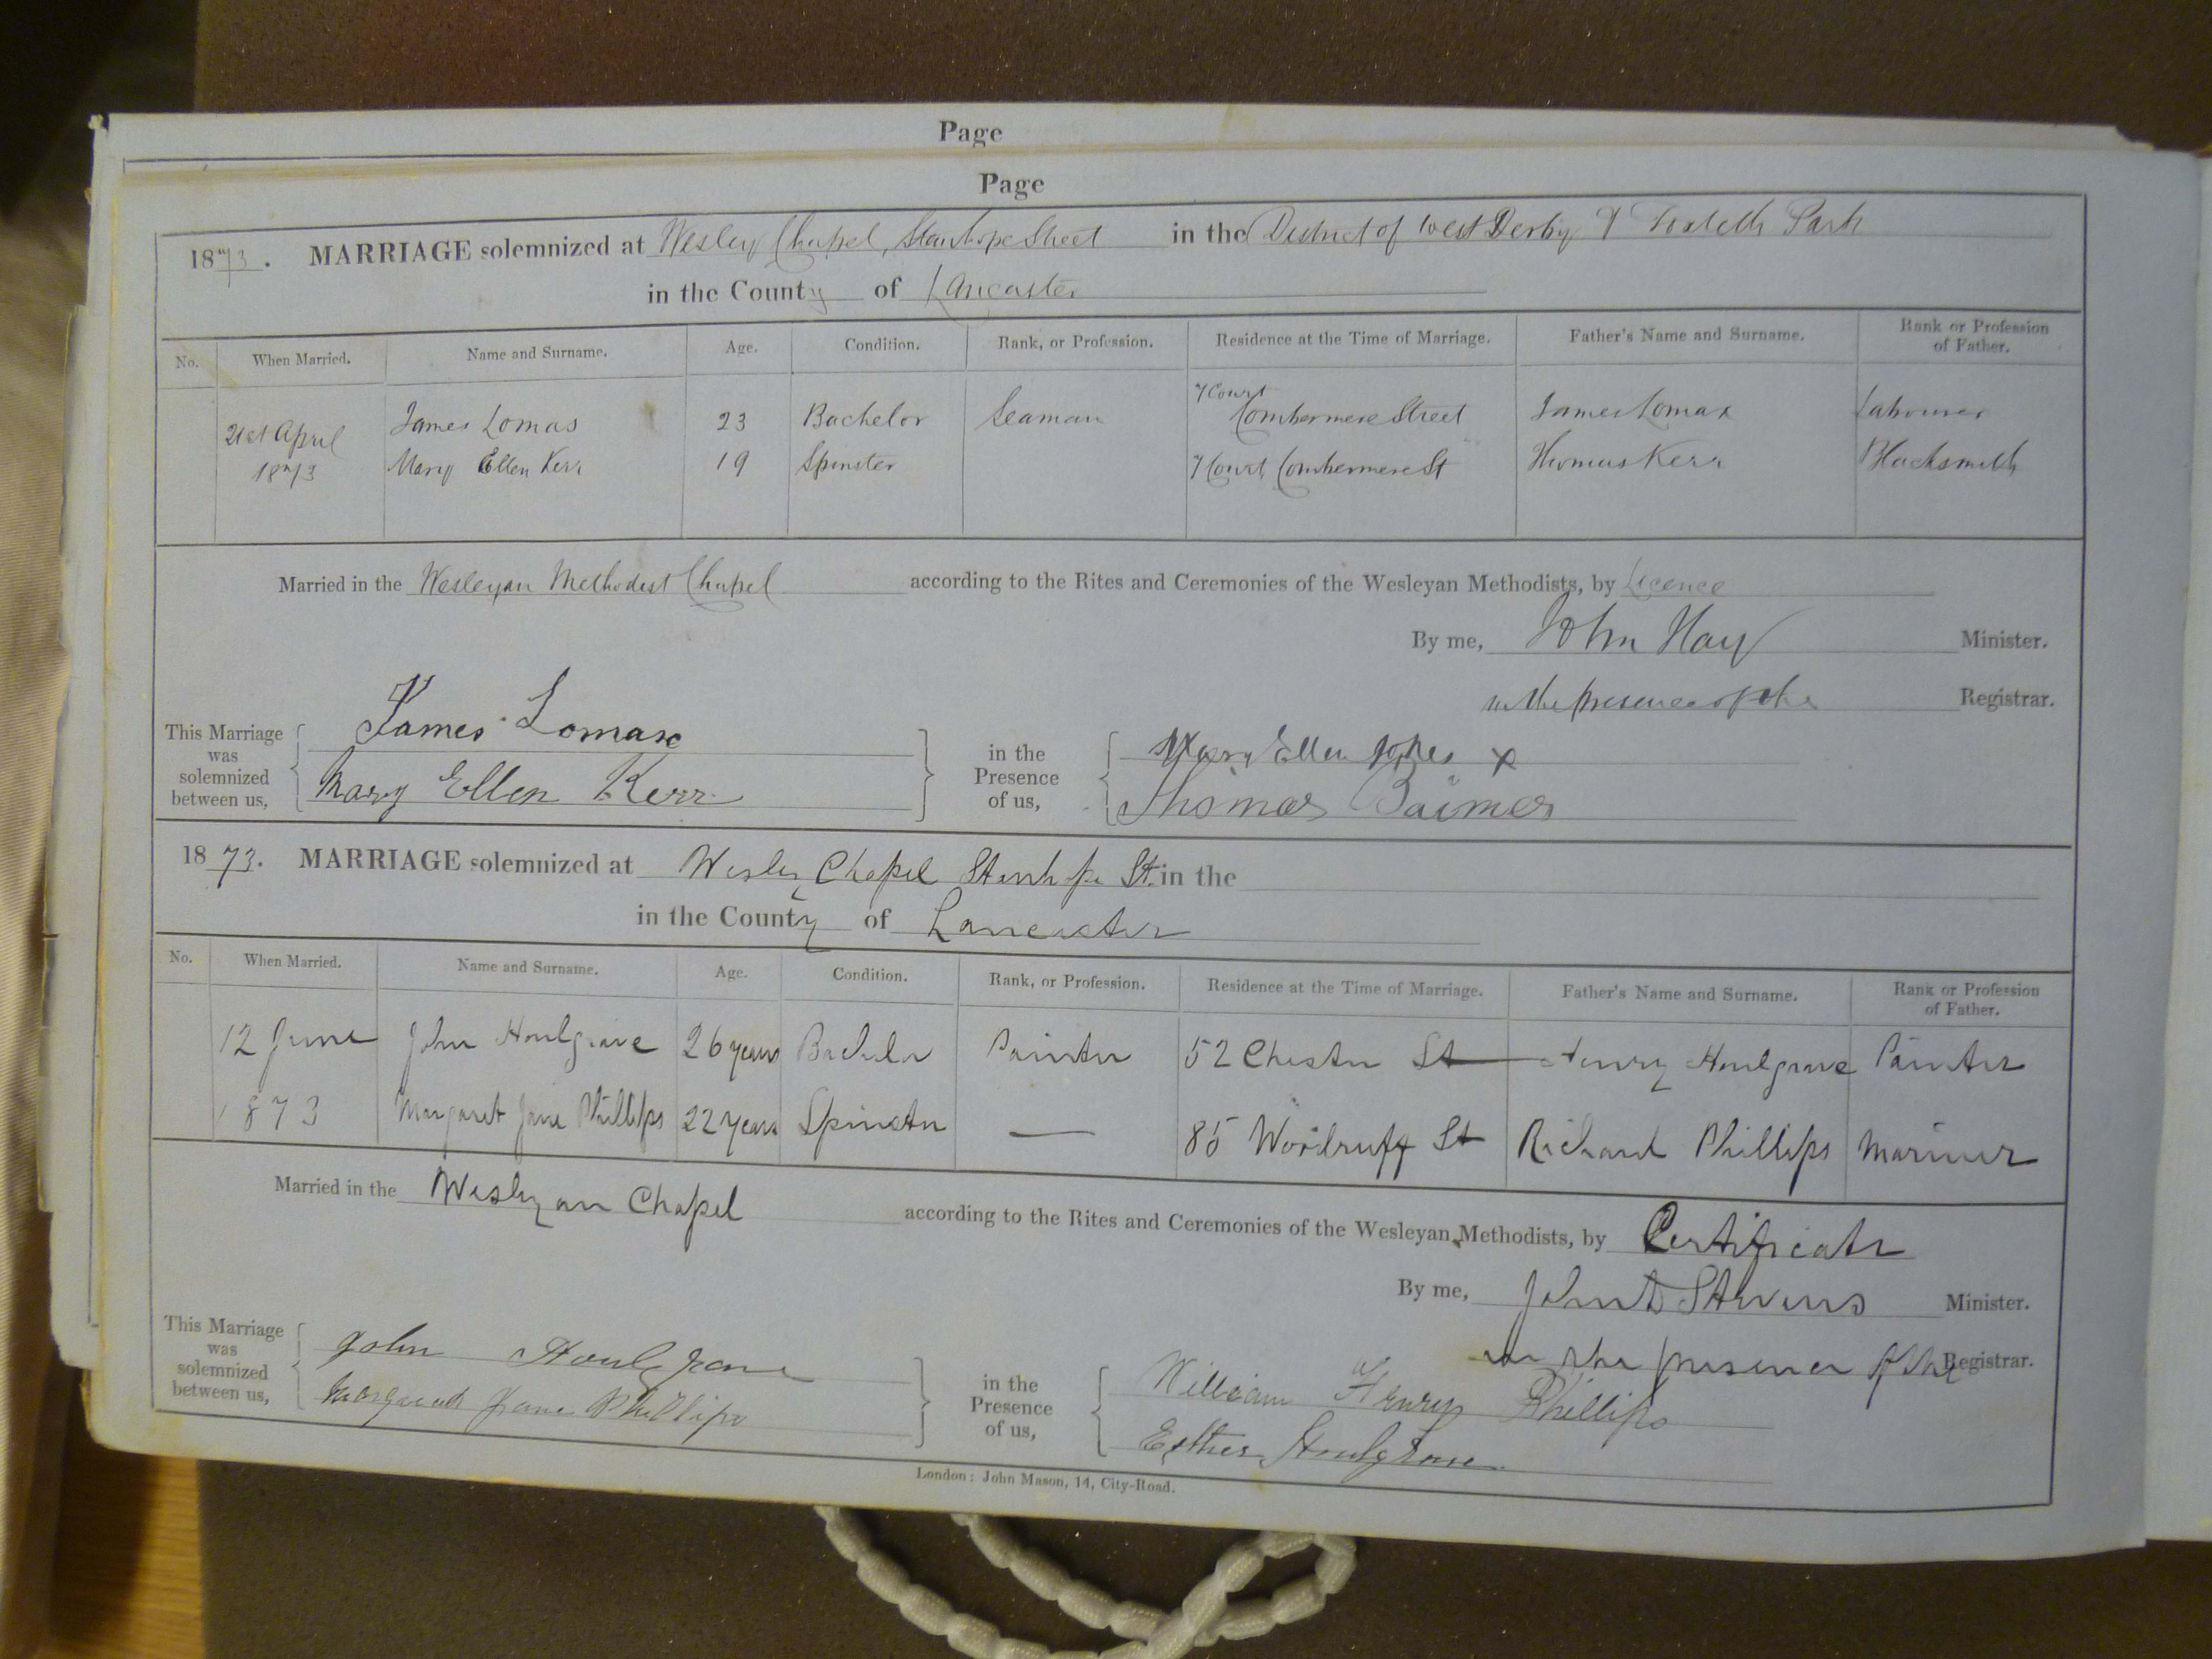 Page
Page
1873. MARRIAGE solemnized at Wesley Chapel, Stanhope Street in the District of West Derby & Toxteth Park
in the County of Lancaster
No. When Married. Name and Surname. Age. Condition. Rank, or Profession. Residence at the Time of Marriage. Father's Name and Surname. Rank or Profession of Father.
21st April James Lomas 23 Bachelor Seaman 7 Court Combermere Street James Lomax Labourer
1873 Mary Ellen Kerr 19 Spinster 7 Court Combermere St Thomas Kerr Blacksmith
Married in the Wesleyan Methodist Chapel according to the Rites and Ceremonies of the Wesleyan Methodists, by Licence
By me, John Hay Minister.
in the presence of the Registrar.
This Marriage was solemnized between us,
James Lomax
Mary Ellen Kerr
in the Presence of us,
Mary Ellen Jones x
Thomas
1873. MARRIAGE solemnized at Wesley Chapel Stanhope St. in the
in the County of Lancaster
No. When Married. Name and Surname. Age. Condition. Rank, or Profession. Residence at the Time of Marriage. Father's Name and Surname. Rank or Profession of Father.
12 June John Houlgrave 26 years Bachelor Painter 52 Chester St Henry Houlgrave Painter
1873 Margaret Jane Phillips 22 years Spinster — 85 Woodruff St Richard Phillips Mariner
Married in the Wesleyan Chapel according to the Rites and Ceremonies of the Wesleyan Methodists, by Certificate
By me, John Stevens Minister.
in the presence of the Registrar.
This Marriage was solemnized between us,
John Houlgrave
Margaret Jane Phillips
in the Presence of us,
William Henry Phillips
Esther Houlgrave
London: John Mason, 14, City-Road.